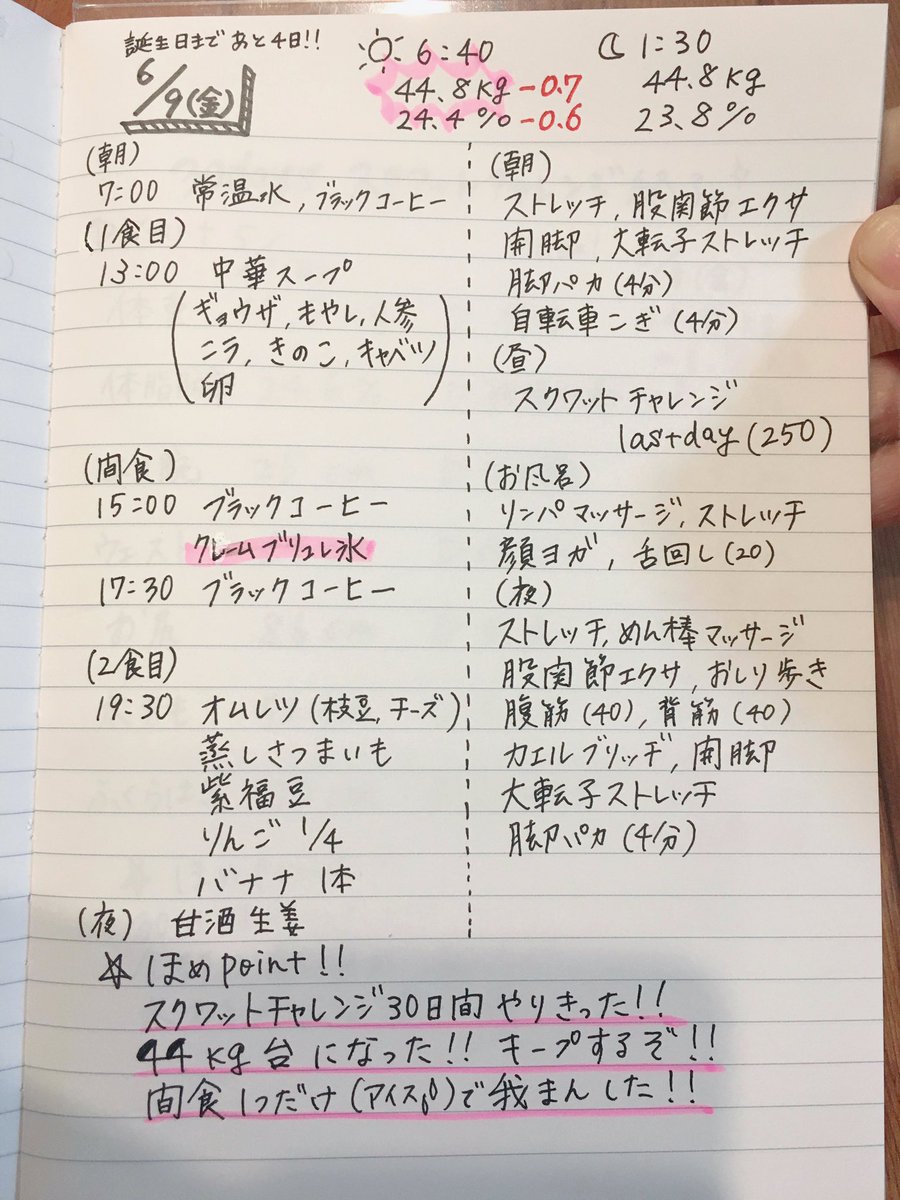 誕生日まであと4日!!
6/9(金)
6:40
44.8kg -0.7
24.4% -0.6
1:30
44.8kg
23.8%
(朝)
7:00 常温水,ブラックコーヒー
(1食目)
13:00 中華スープ
(ギョウザ,もやし,人参
ニラ,きのこ,キャベツ
卵)
(間食)
15:00 ブラックコーヒー
クレームブリュレ氷
17:30 ブラックコーヒー
(2食目)
19:30 オムレツ(枝豆,チーズ)
蒸しさつまいも
紫福豆
りんご 1/4
バナナ 1本
(夜) 甘酒生姜
(朝)
ストレッチ,股関節エクサ
開脚,大転子ストレッチ
脚パカ(4分)
自転車こぎ(4分)
(昼)
スクワットチャレンジ
lastday(250)
(お風呂)
リンパマッサージ,ストレッチ
顔ヨガ,舌回し(20)
(夜)
ストレッチ,めん棒マッサージ
股関節エクサ,おしり歩き
腹筋(40),背筋(40)
カエルブリッヂ,開脚
大転子ストレッチ
脚パカ(4分)
☆ほめpoint!!
スクワットチャレンジ30日間やりきった!!
44kg台になった!! キープするぞ!!
間食1つだけ(アイス)で我まんした!!